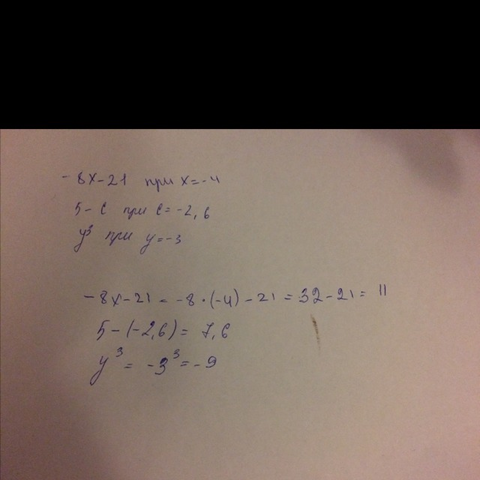 -8x-21 при x=-4
5-c при c=-2,6
y³ при y=-3
-8x-21=-8·(-4)-21=32-21=11
5-(-2,6)=7,6
y³=-3³=-9